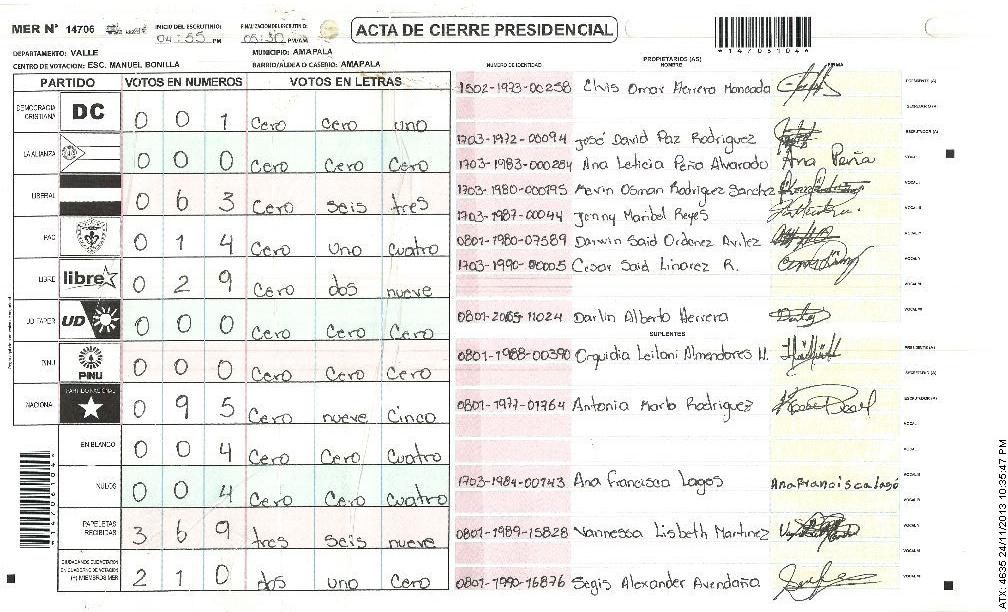 MER Nº 14706
INICIO DEL ESCRUTINIO:
04:55 PM
FINALIZACION ESCRUTINIO:
05:30 PM/AM
ACTA DE CIERRE PRESIDENCIAL
*1470610 4*
DEPARTAMENTO: VALLE
MUNICIPIO: AMAPALA
CENTRO DE VOTACION: ESC. MANUEL BONILLA
BARRIO/ALDEA O CASERIO: AMAPALA
PARTIDO VOTOS EN NUMEROS VOTOS EN LETRAS
DEMOCRACIA CRISTIANA DC 0 0 1 Cero cero uno
LA ALIANZA 0 0 0 Cero Cero Cero
LIBERAL 0 6 3 Cero seis tres
PAC 0 1 4 Cero uno cuatro
LIBRE libre 0 2 9 Cero dos nueve
UD-FAPER UD 0 0 0 Cero Cero Cero
PINU PINU 0 0 0 Cero Cero Cero
NACIONAL PARTIDO NACIONAL 0 9 5 Cero nueve Cinco
EN BLANCO 0 0 4 Cero Cero Cuatro
NULOS 0 0 4 Cero Cero Cuatro
PAPELETAS RECIBIDAS 3 6 9 tres seis nueve
CIUDADANOS QUE VOTARON EN CUADERNO DE VOTACION (+) MIEMBROS MER 2 1 0 dos uno Cero
NUMERO DE IDENTIDAD PROPIETARIOS (AS) NOMBRE FIRMA
1502-1973-00258 Elvis Omar Herrera Moncada PRESIDENTE (A)
SECRETARIO (A)
1703-1972-00094 José David Paz Rodriguez ESCRUTADOR (A)
1703-1983-000284 Ana Leticia Peña Alvarado Ana Peña VOCAL I
1703-1980-000195 Kevin Osman Rodriguez Sanchez
1703-1987-00044 Jenny Maribel Reyes
0801-1980-07589 Darwin Said Ordenez Avilez
1703-1990-00005 Cesar Said Linarez R.
Darlin Alberto Herrera
SUPLENTES
0801-1988-00390 Orquidia Leilani Almendares M. PRESIDENTE (A)
SECRETARIO (A)
0801-1977-01764 Antonia Marb Rodriguez ESCRUTADOR (A)
1703-1984-00143 Ana Francisca Lagos Ana Francisca Lago
0801-1989-15828 Vannessa Lisbeth Martinez
0801-1990-16876 Segis Alexander Avendaña
ATX: 4635 24/11/2013 10:35:47 PM